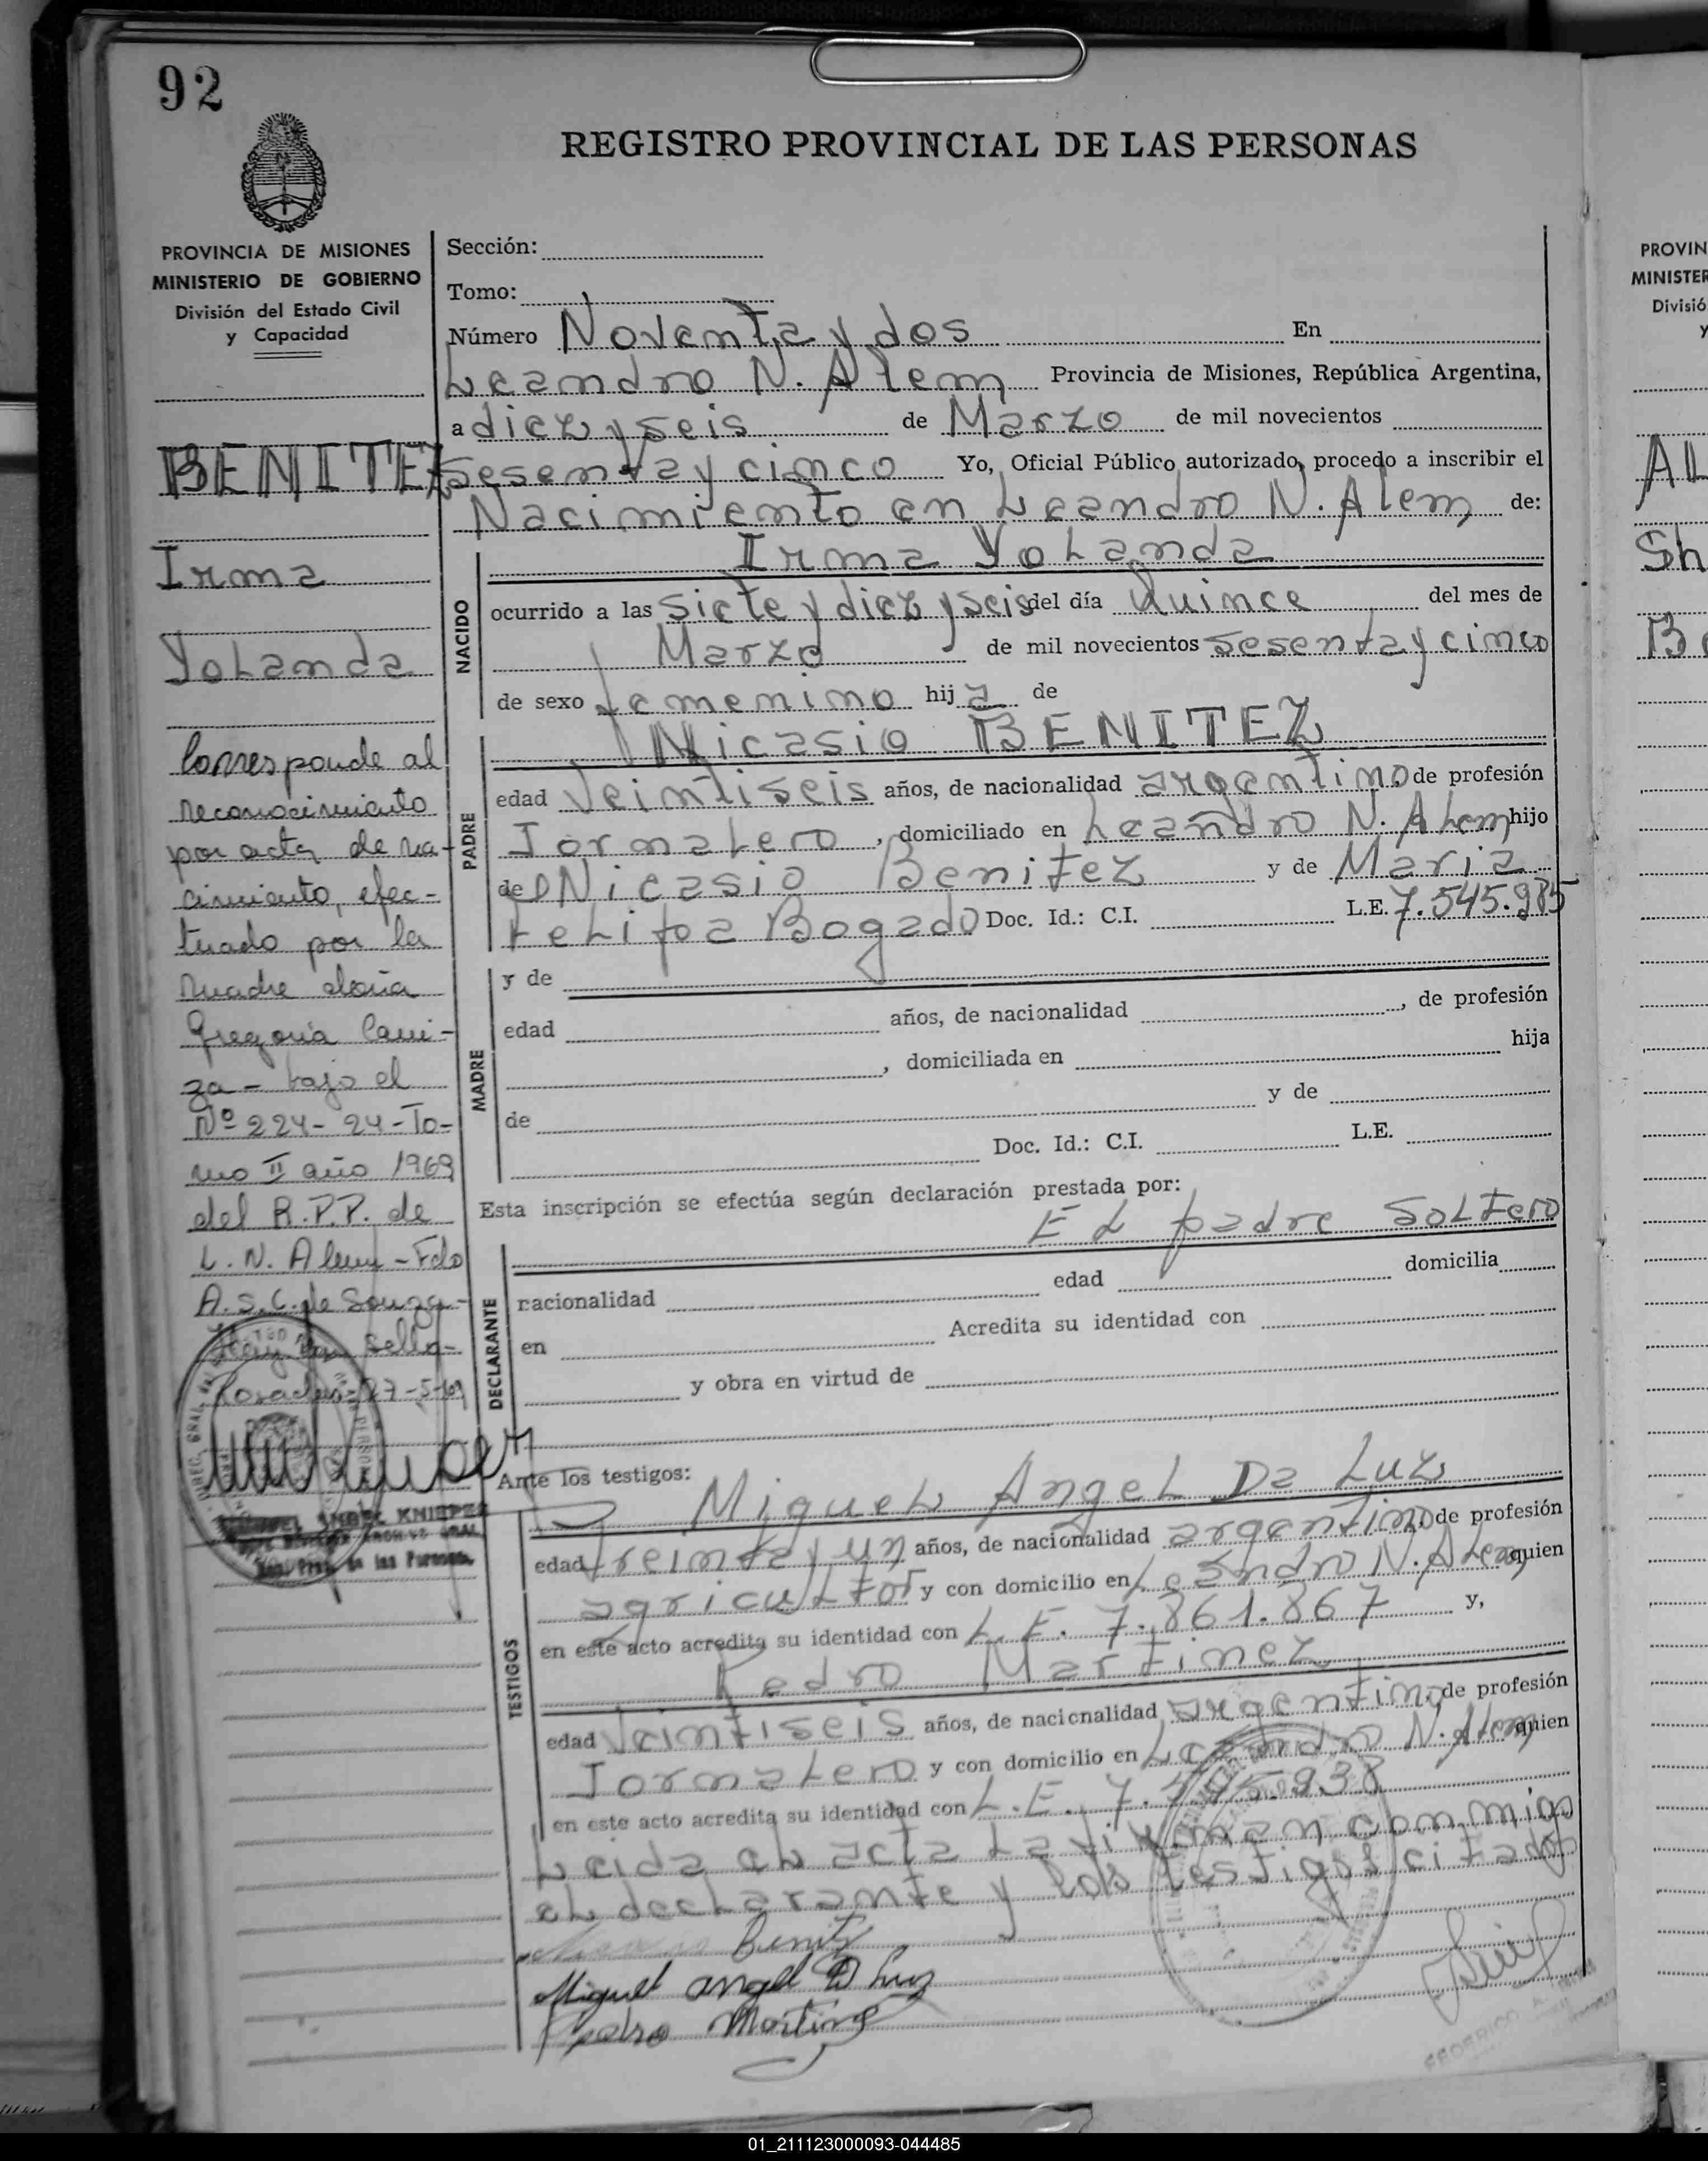 92
REGISTRO PROVINCIAL DE LAS PERSONAS
PROVINCIA DE MISIONES
MINISTERIO DE GOBIERNO
División del Estado Civil
y Capacidad
BENITEZ
Irma
Yolanda
Corresponde al
reconocimiento
por acta de na-
cimiento, efec-
tuado por la
madre doña
Gregoria Cani-
za - bajo el
Nº 224- 24-To-
mo II año 1969
del R.P.P. de
L. N. Alem - Fdo
A.S.C. de Souza -
Hay un sello-
Posadas, 27-5-69
Sección:
Tomo:
Número Noventa y dos En
Leandro N. Alem Provincia de Misiones, República Argentina,
a diez y seis de Marzo de mil novecientos
sesenta y cinco Yo, Oficial Público autorizado, procedo a inscribir el
Nacimiento en Leandro N. Alem de:
NACIDO
Irma Yolanda
ocurrido a las siete y diez y seis del día Quince del mes de
Marzo de mil novecientos sesenta y cinco
de sexo femenino hija de
PADRE
Nicasio BENITEZ
edad Veintiseis años, de nacionalidad argentino de profesión
Jornalero, domiciliado en Leandro N. Alem hijo
de Nicasio Benitez y de Maria
Doc. Id.: C.I. L.E. 7.545.985
Bogado
MADRE
y de
edad años, de nacionalidad , de profesión
, domiciliada en hija
de y de
Doc. Id.: C.I. L.E.
Esta inscripción se efectúa según declaración prestada por:
El padre soltero
DECLARANTE
edad domicilia
nacionalidad
en Acredita su identidad con
y obra en virtud de
Ante los testigos:
TESTIGOS
Miguel Angel Da Luz
edad treinta y un años, de nacionalidad argentino de profesión
agricultor y con domicilio en Leandro N. Alem quien
en este acto acredita su identidad con L.E. 7.861.867 y,
Pedro Martinez
edad Veintiseis años, de nacionalidad argentino de profesión
Jornalero y con domicilio en Leandro N. Alem quien
en este acto acredita su identidad con L.E.
Leida el acta la firman conmigo
el declarante y los testigos citados
Benitez
Miguel angel D Luz
Pedro Martinez
PROVIN
MINISTER
Divisió
y
AL
Sh
01_211123000093-044485